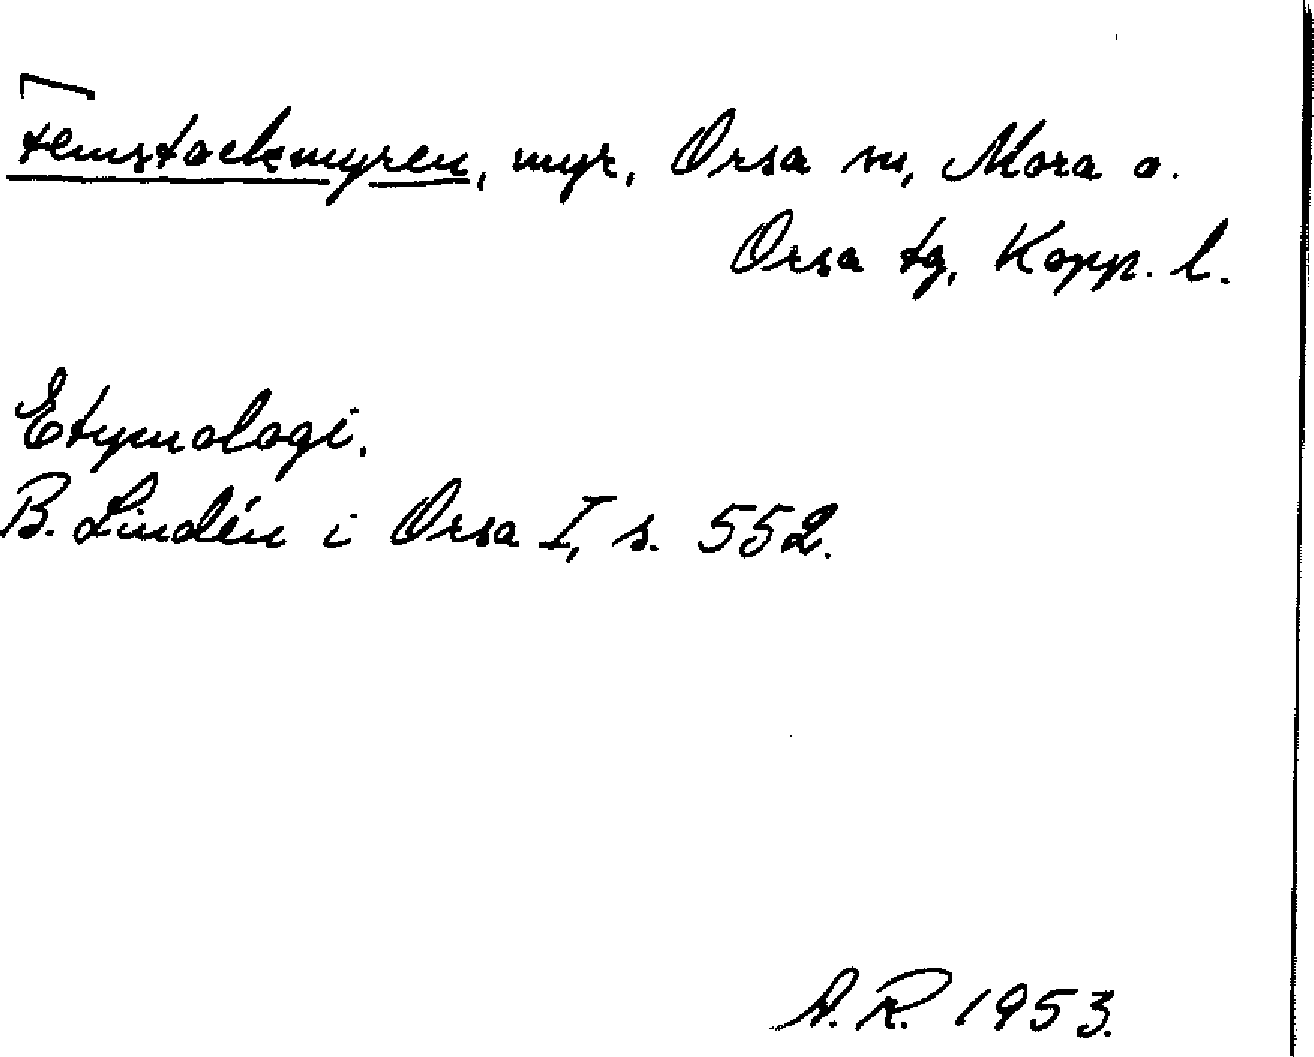 Femstockmyren, myr, Orsa sn, Mora o.
Orsa tg, Kopp. l.
Etymologi.
B. Lindén i Orsa I, s. 552.
A.R. 1953.